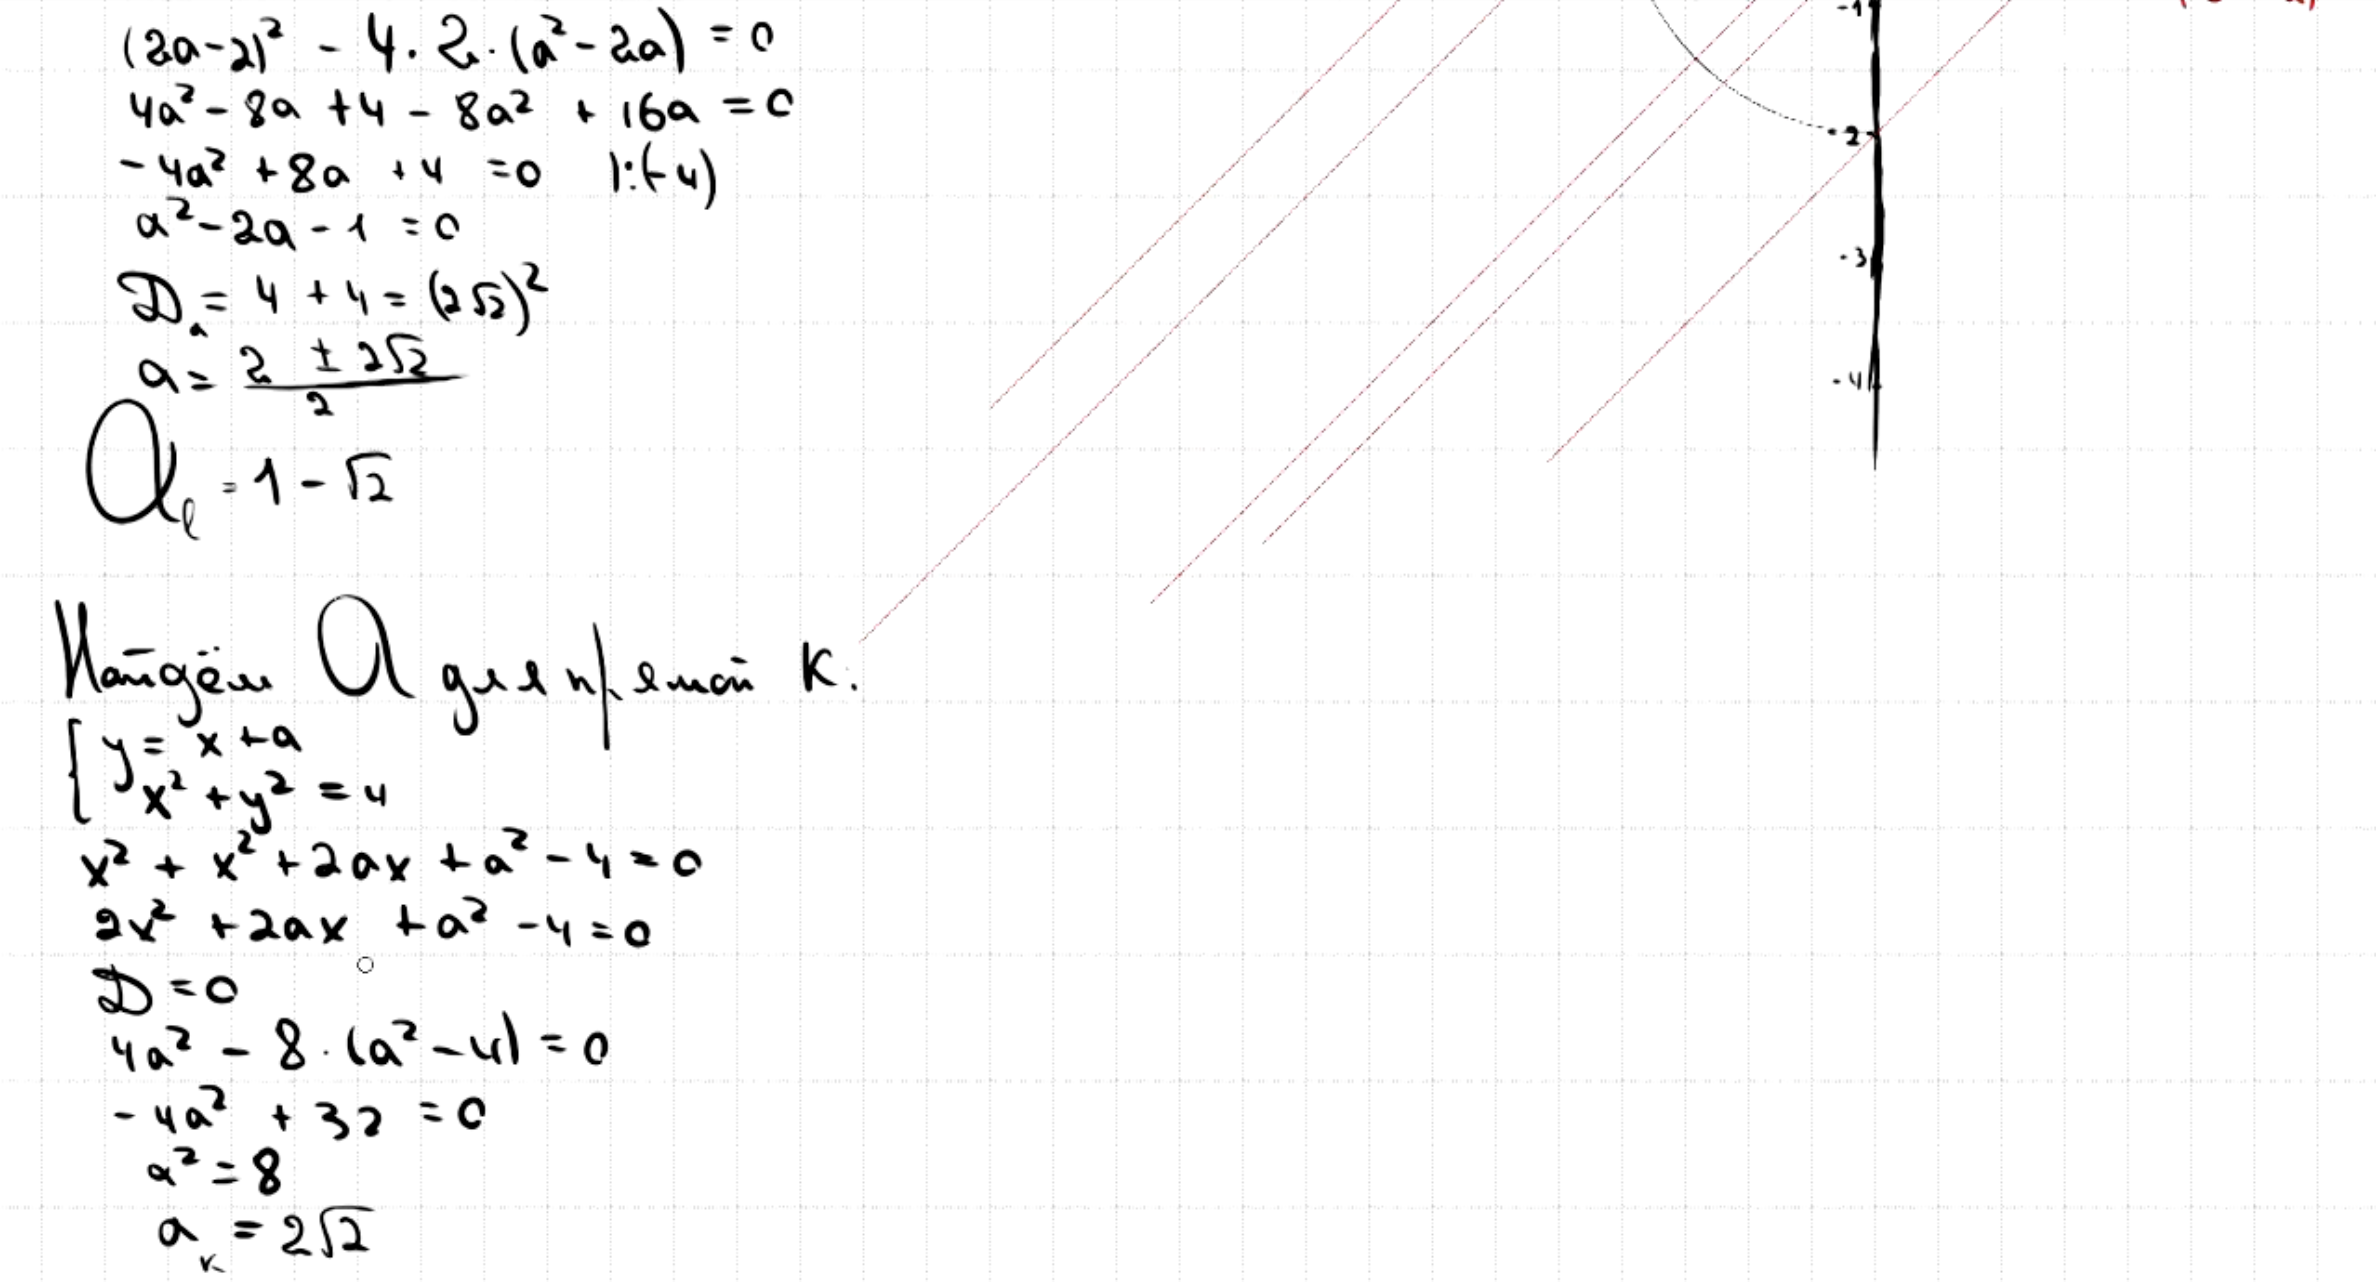 (2a-2)² - 4·2·(a²-2a) = 0
4a² - 8a + 4 - 8a² + 16a = 0
-4a² + 8a + 4 = 0 |:(-4)
a² - 2a - 1 = 0
Dₐ = 4 + 4 = (2√2)²
a = (2 ± 2√2)/2
a_l = 1 - √2
Найдём a для прямой K:
{ y = x + a
x² + y² = 4
x² + x² + 2ax + a² - 4 = 0
2x² + 2ax + a² - 4 = 0
D = 0
4a² - 8·(a² - 4) = 0
-4a² + 32 = 0
a² = 8
a_K = 2√2
-1
-2
-3
-4